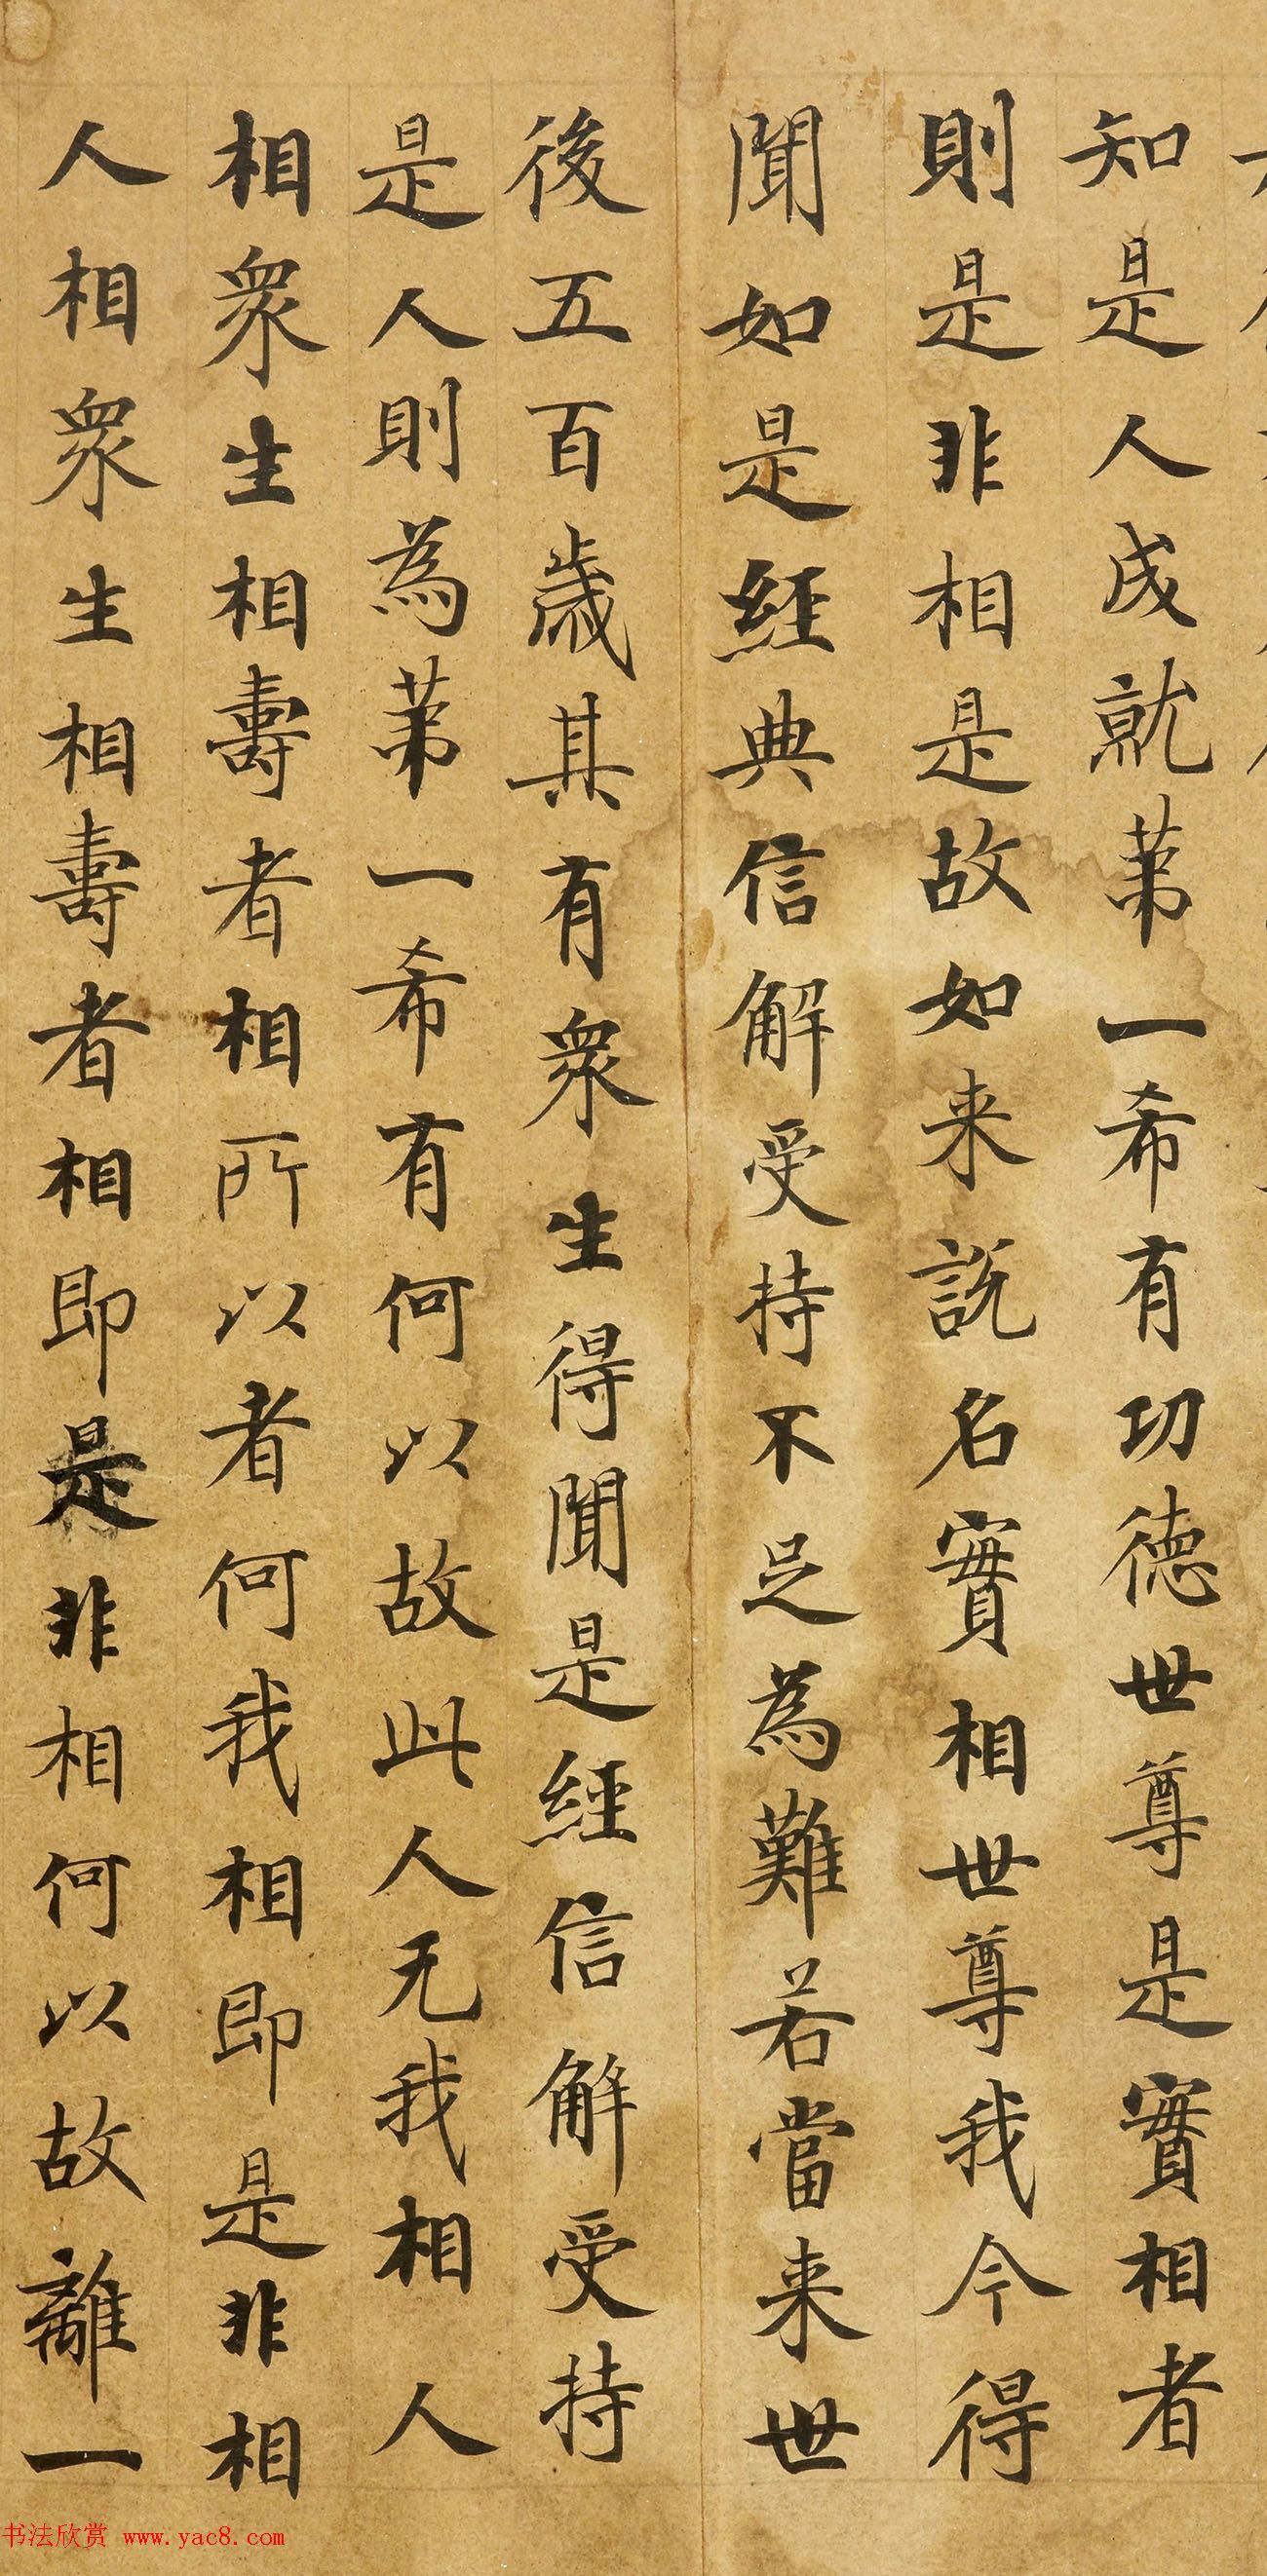 知是人成就第一希有功德世尊是實相者
則是非相是故如来說名實相世尊我今得
聞如是經典信解受持不足為難若當来世
後五百歲其有衆生得聞是經信解受持
是人則為第一希有何以故此人无我相人
相衆生相壽者相所以者何我相即是非相
人相衆生相壽者相即是非相何以故離一
书法欣赏 www.yac8.com